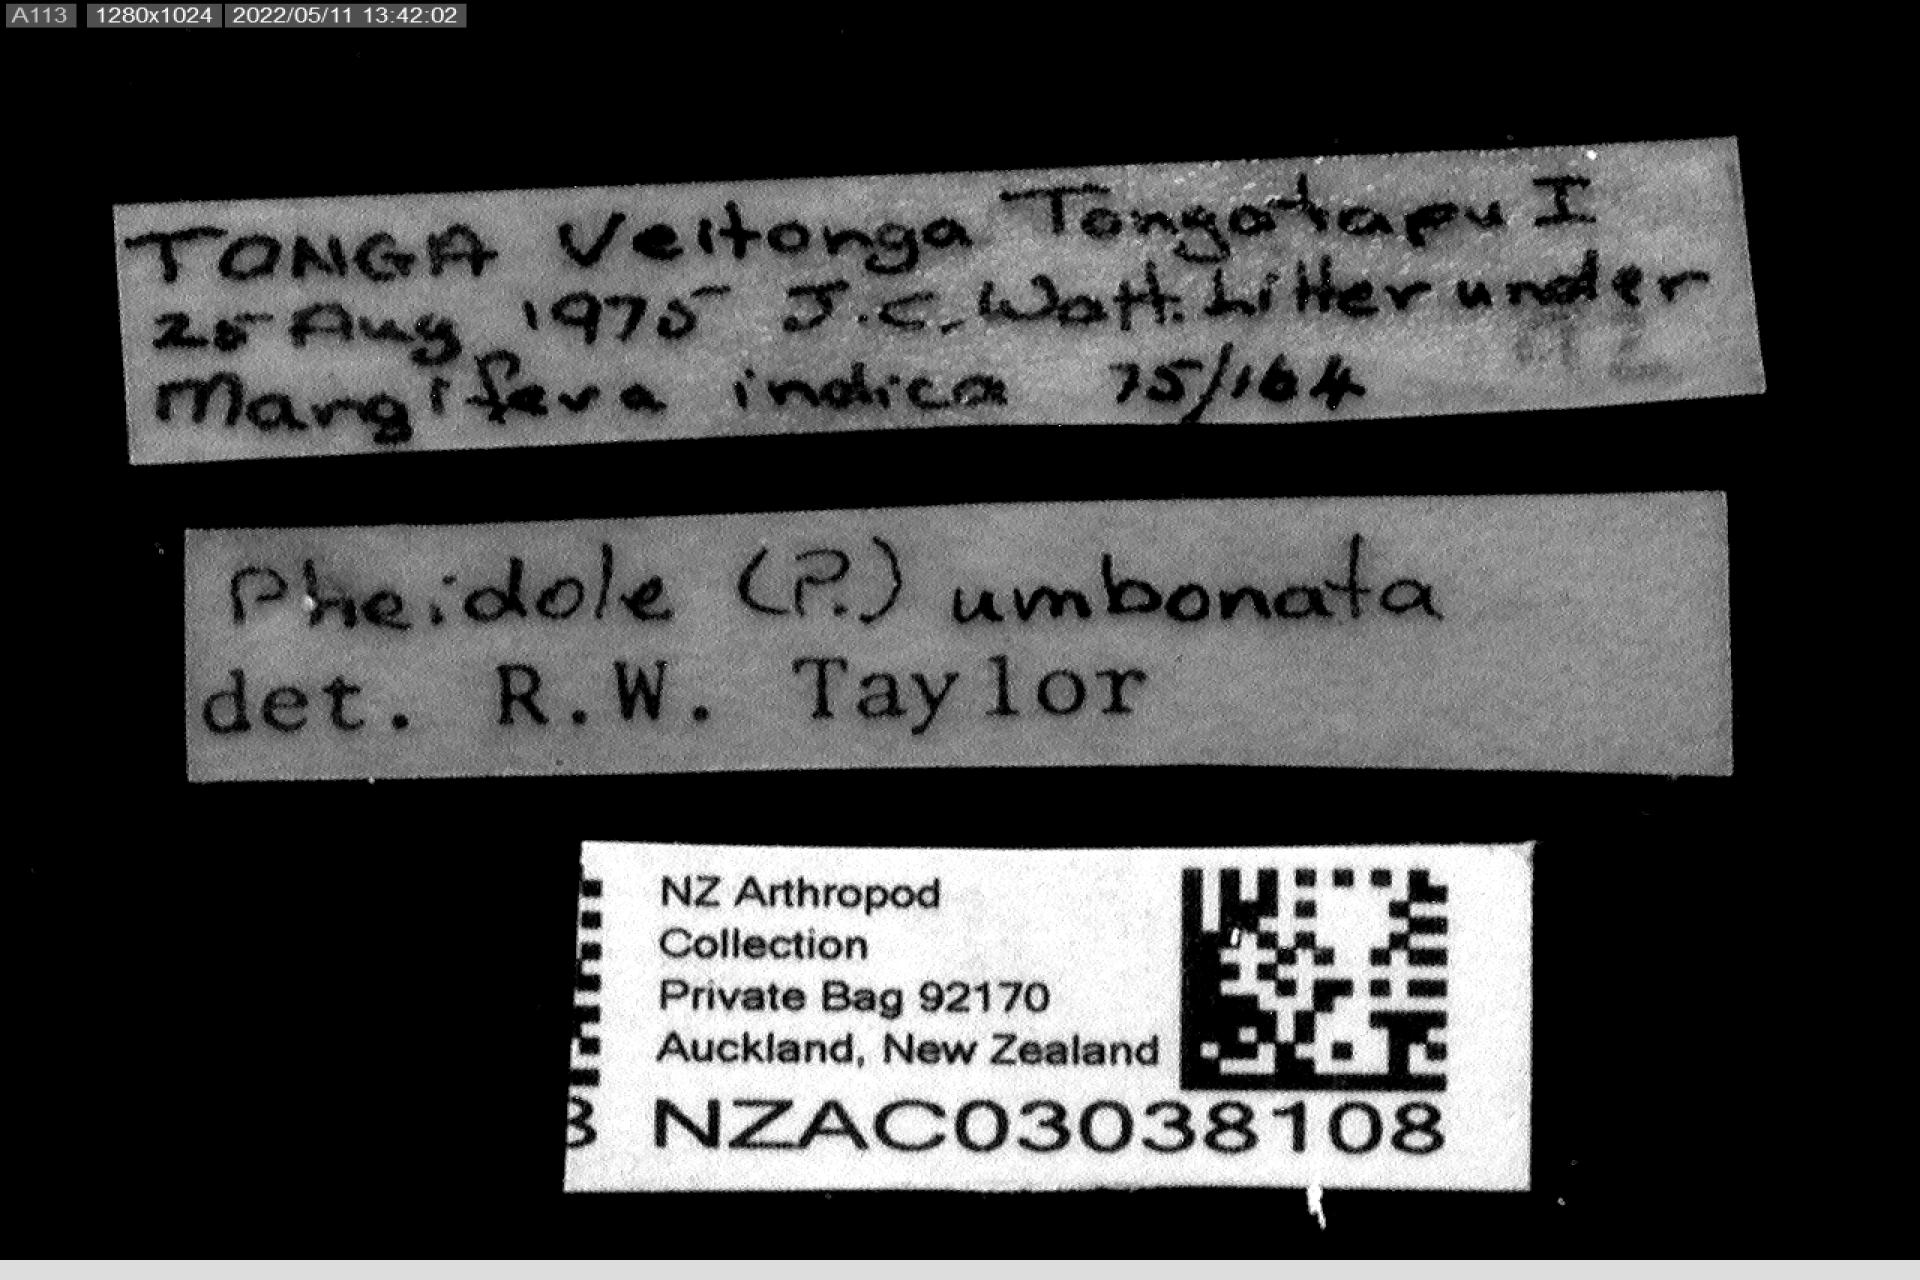 A113 1280x1024 2022/05/11 13:42:02
TONGA Veitonga Tongatapu I
25 Aug 1975 J.C. Watt. Litter under
Mangifera indica 75/164
Pheidole (P.) umbonata
det. R.W. Taylor
NZ Arthropod
Collection
Private Bag 92170
Auckland, New Zealand
NZAC03038108